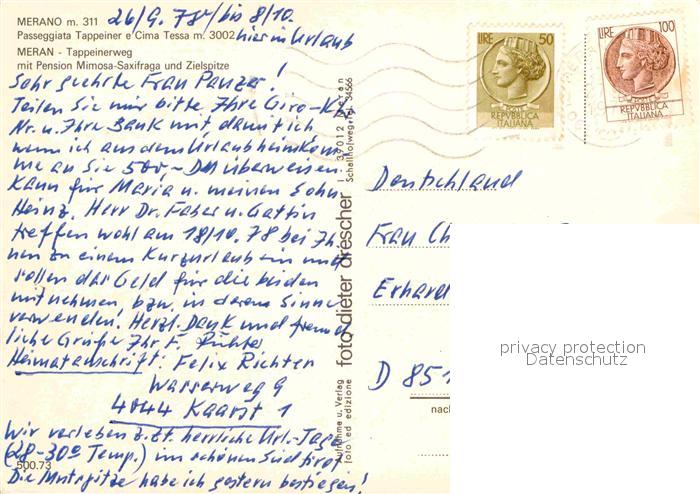 MERANO m. 311
Passeggiata Tappeiner e Cima Tessa m. 3002
MERAN - Tappeinerweg
mit Pension Mimosa-Saxifraga und Zielspitze
26/9. 78 / bis 8/10.
hier in Urlaub
Sehr geehrte Frau Panzer!
Teilen Sie mir bitte Ihre Giro-Kt.
Nr. u. Ihre Bank mit, damit ich
wenn ich aus dem Urlaub heimkom
me an Sie 500,- DM überweisen
kann für Maria u. meinen Sohn
Heinz. Herr Dr. Faber u. Gattin
treffen wohl am 18/10. 78 bei Ih-
nen zu einem Kurzurlaub ein und
sollen das Geld für die beiden
mitnehmen bzw. in deren Sinne
verwenden. Herzl. Dank und freund
liche Grüße Ihr F. Richter
Heimatanschrift: Felix Richter
Wasserweg 9
4044 Kaarst 1
Wir verleben z.Zt. herrliche Url.-Tage
(28-30° Temp.) im schönen Südtirol
Die Mutspitze habe ich gestern bestiegen!
500.73
Aufnahme u. Verlag
foto ed edizione
foto dieter drescher
I 39012 Meran
LIRE 50
REPVBBLICA
ITALIANA
LIRE 100
REPVBBLICA
ITALIANA
Deutschland
Frau Ch
Erhard
D 851
nac
privacy protection
Datenschutz